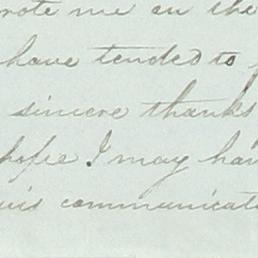 rote me on the
have tended to
sincere thanks
hope I may hav
uis communicat